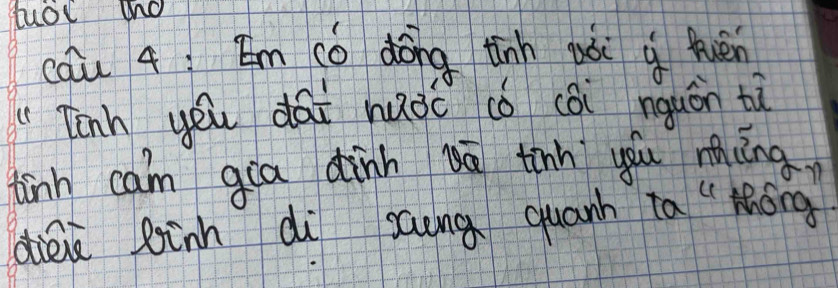 tuổi thơ
câu 4: Em có đồng tình với ý kiến
"Tình yêu đất nước có cội nguồn từ
tình cảm gia đình và tình yêu những
điều bình dị xung quanh ta" không"